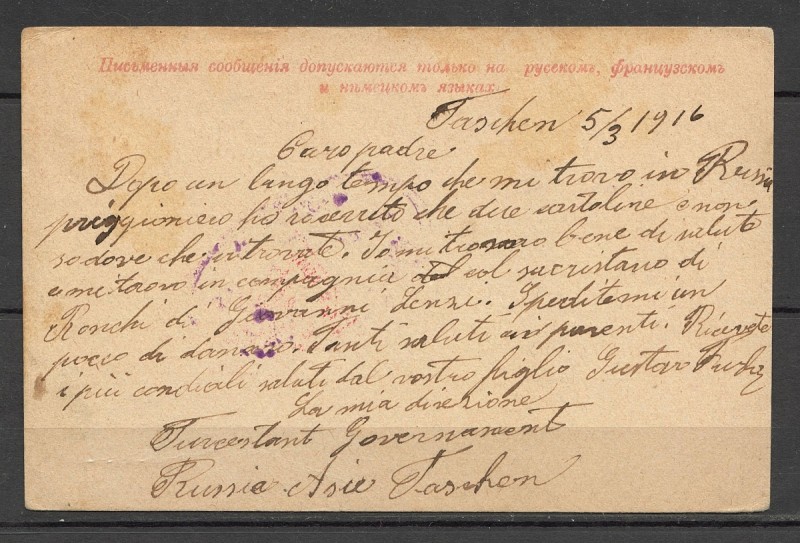 Письменныя сообщенія допускаются только на русскомъ, французскомъ
и нѣмецкомъ языкахъ.
Taschen 5/3 1916
Caro padre
Dopo un lungo tempo che mi trovo in Russia
priggioniero ho ricevuto che due cartoline e non
so dove che vi trovate. Io mi trovo bene di salute
e me trovo in compagnia col sacristano di
Ronchi di Giovanni Lenzi. Speditemi un
pocco di danaro. Tanti saluti ai parenti. Ricevete
i più condicali saluti dal vostro figlio Gustavo
La mia direzione
Turcestant Governament
Russia Asia Taschen